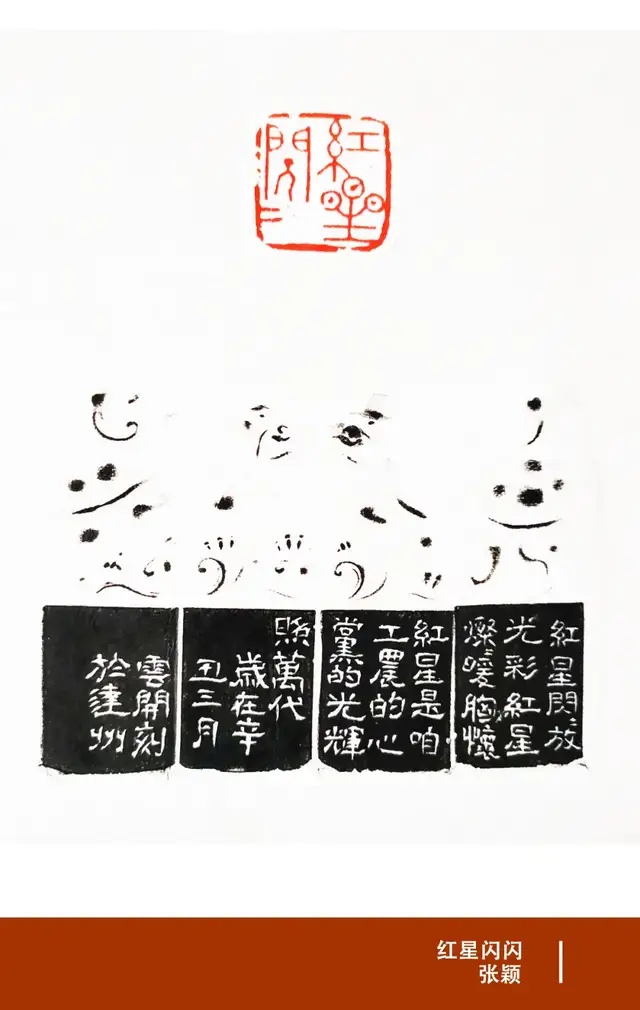 紅星閃=
紅星閃=放
光彩紅星
燦=暖胸懷
紅星是咱
工農的心
黨的光輝
照萬代
歲在辛
丑三月
雲開刻
於達州
红星闪闪
张颖